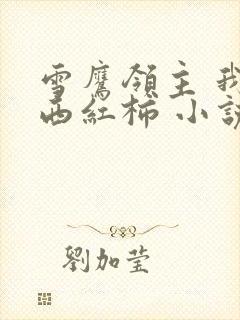 雪鷹領主 我
西紅柿 小説
劉加莹